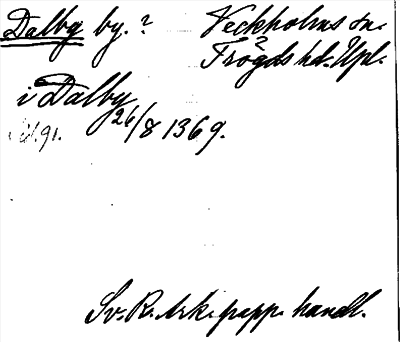 Dalby by. ? Veckholms sn.
Trögds hd. Upl.
?
i Dalby
26/8 1369.
91.
Sv. R. Ark. papp. handl.